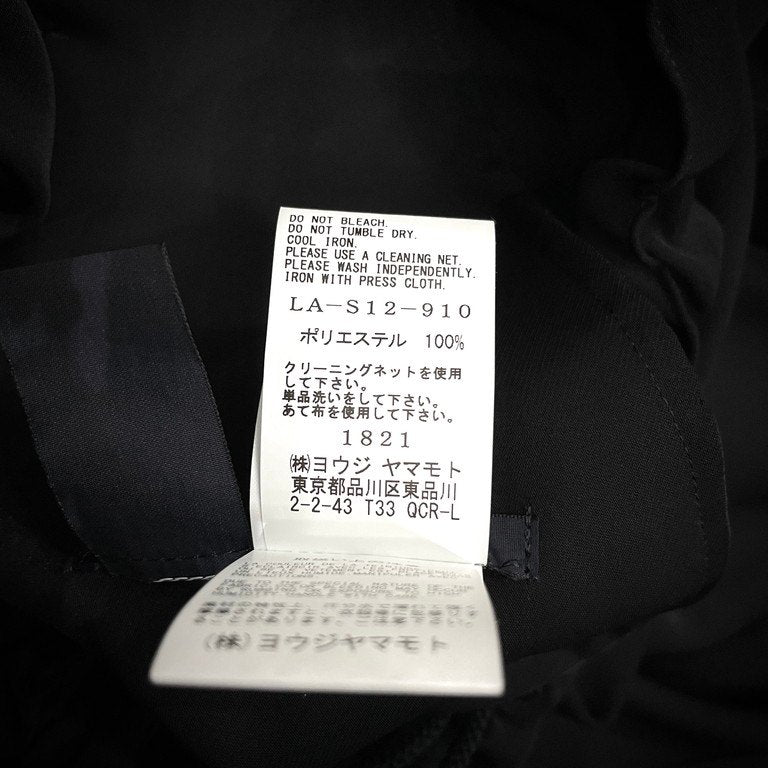 DO NOT BLEACH.
DO NOT TUMBLE DRY.
COOL IRON.
PLEASE USE A CLEANING NET.
PLEASE WASH INDEPENDENTLY.
IRON WITH PRESS CLOTH.
LA-S12-910
ポリエステル 100%
クリーニングネットを使用
して下さい。
単品洗いをして下さい。
あて布を使用して下さい。
1821
㈱ヨウジ ヤマモト
東京都品川区東品川
2-2-43 T33 QCR-L
DUE TO THE SPECIAL NATURE
(株)ヨウジヤマモト